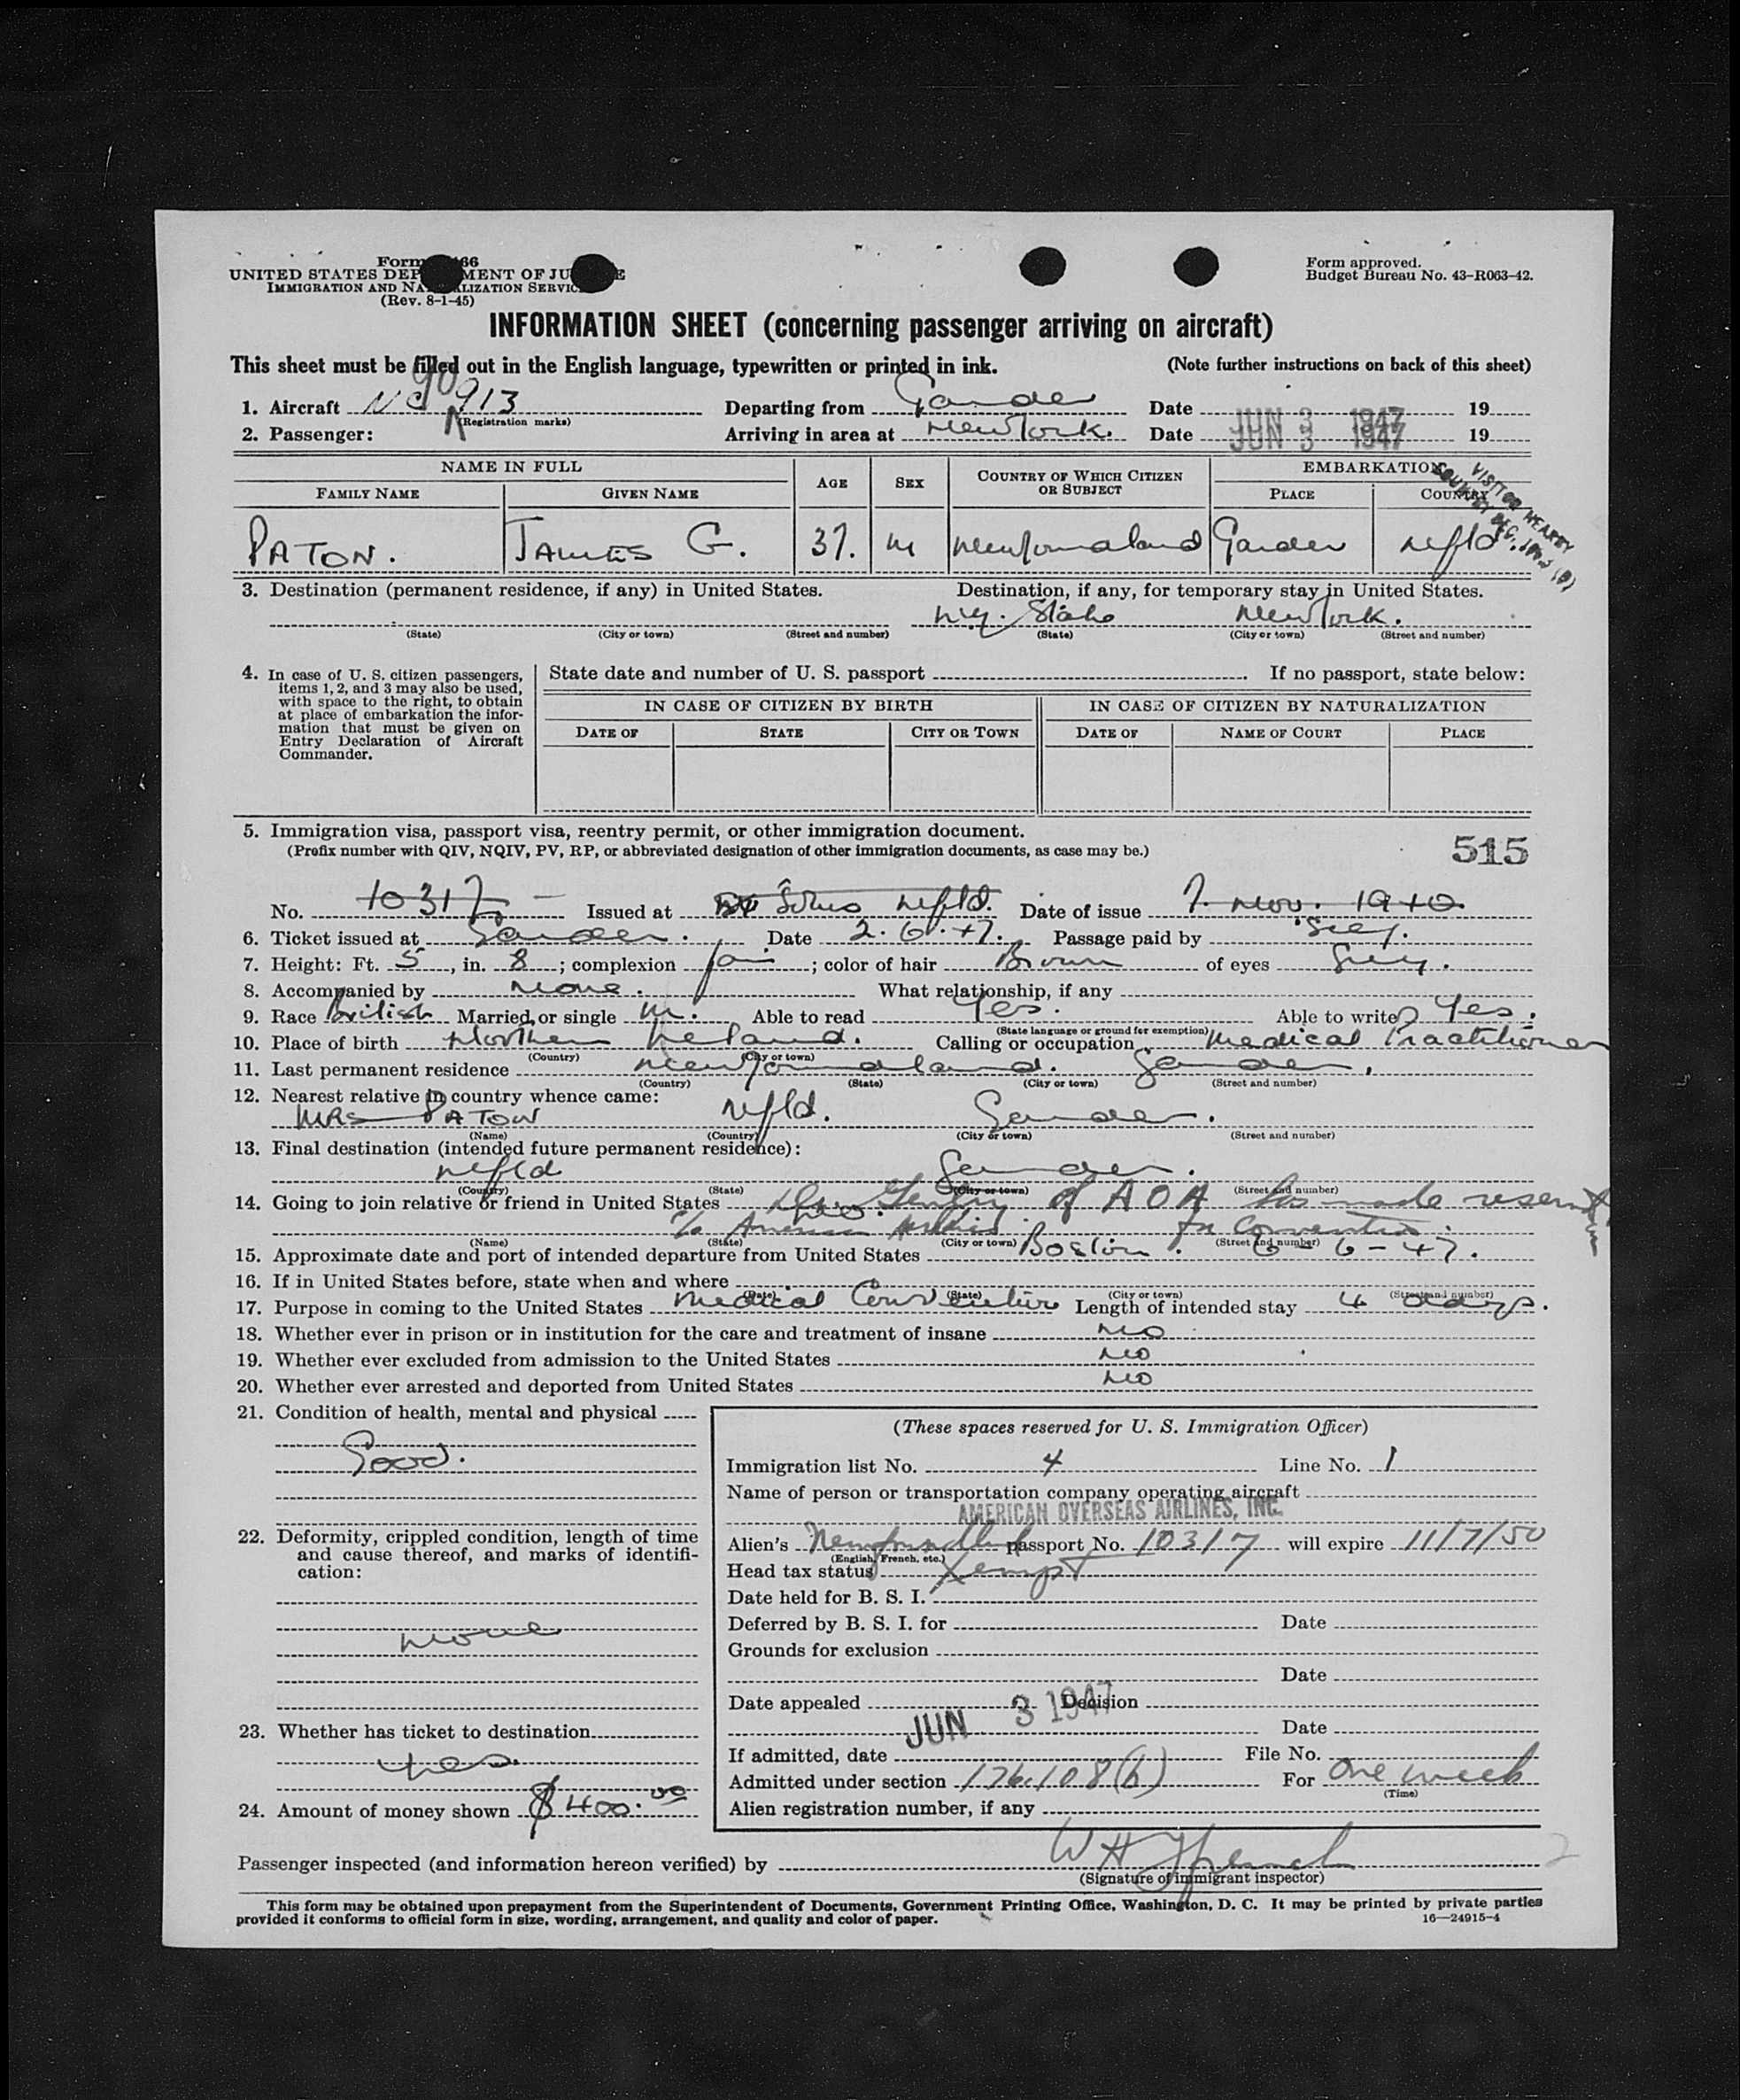 Form 66
UNITED STATES DEP MENT OF JU E
IMMIGRATION AND NA LIZATION SERVIC
(Rev. 8-1-45)
Form approved.
Budget Bureau No. 43-R063-42.
INFORMATION SHEET (concerning passenger arriving on aircraft)
This sheet must be filled out in the English language, typewritten or printed in ink. (Note further instructions on back of this sheet)
1. Aircraft NC 90913 Departing from Gander Date JUN 3 1947 19
(Registration marks)
2. Passenger: Arriving in area at New York. Date JUN 3 1947 19
NAME IN FULL AGE SEX COUNTRY OF WHICH CITIZEN OR SUBJECT EMBARKATION
FAMILY NAME GIVEN NAME PLACE COUNTRY
VISITOR NEARBY
COUNTRY
PATON. JAMES G. 37. M Newfoundland Gander Nfld.
3. Destination (permanent residence, if any) in United States. Destination, if any, for temporary stay in United States.
N.Y. State New York.
(State) (City or town) (Street and number) (State) (City or town) (Street and number)
4. In case of U. S. citizen passengers, items 1, 2, and 3 may also be used, with space to the right, to obtain at place of embarkation the information that must be given on Entry Declaration of Aircraft Commander.
State date and number of U. S. passport . If no passport, state below:
IN CASE OF CITIZEN BY BIRTH IN CASE OF CITIZEN BY NATURALIZATION
DATE OF STATE CITY OR TOWN DATE OF NAME OF COURT PLACE
5. Immigration visa, passport visa, reentry permit, or other immigration document.
(Prefix number with QIV, NQIV, PV, RP, or abbreviated designation of other immigration documents, as case may be.) 515
No. 10317 Issued at St Johns Nfld. Date of issue 7. Nov. 1940.
6. Ticket issued at Gander. Date 2.6.47. Passage paid by Self.
7. Height: Ft. 5, in. 8; complexion fair; color of hair Brown of eyes Grey.
8. Accompanied by None. What relationship, if any
9. Race British Married or single M. Able to read Yes. Able to write Yes.
(State language or ground for exemption)
10. Place of birth Northern Ireland. Calling or occupation Medical Practitioner
(Country) (City or town)
11. Last permanent residence Newfoundland. Gander.
(Country) (State) (City or town) (Street and number)
12. Nearest relative in country whence came:
MRS PATON Nfld. Gander.
(Name) (Country) (City or town) (Street and number)
13. Final destination (intended future permanent residence):
Nfld Gander.
(Country) (State) (City or town) (Street and number)
14. Going to join relative or friend in United States of AOA has made reservation
c/o American for Convention.
(Name) (State) (City or town) (Street and number)
15. Approximate date and port of intended departure from United States Boston. 6-6-47.
16. If in United States before, state when and where
(Date) (State) (City or town) (Street and number)
17. Purpose in coming to the United States Medical Convention Length of intended stay 4 days.
18. Whether ever in prison or in institution for the care and treatment of insane No
19. Whether ever excluded from admission to the United States No
20. Whether ever arrested and deported from United States No
21. Condition of health, mental and physical
Good.
22. Deformity, crippled condition, length of time and cause thereof, and marks of identification:
None
23. Whether has ticket to destination
Yes.
24. Amount of money shown $400.00
(These spaces reserved for U. S. Immigration Officer)
Immigration list No. 4 Line No. 1
Name of person or transportation company operating aircraft
AMERICAN OVERSEAS AIRLINES, INC.
Alien's Newfoundland passport No. 10317 will expire 11/7/50
(English, French, etc.)
Head tax status Exempt
Date held for B. S. I.
Deferred by B. S. I. for Date
Grounds for exclusion
Date
Date appealed Decision
JUN 3 1947 Date
If admitted, date File No.
Admitted under section 176.108(b) For One week
(Time)
Alien registration number, if any
Passenger inspected (and information hereon verified) by
(Signature of immigrant inspector)
This form may be obtained upon prepayment from the Superintendent of Documents, Government Printing Office, Washington, D. C. It may be printed by private parties
provided it conforms to official form in size, wording, arrangement, and quality and color of paper. 16—24915-4